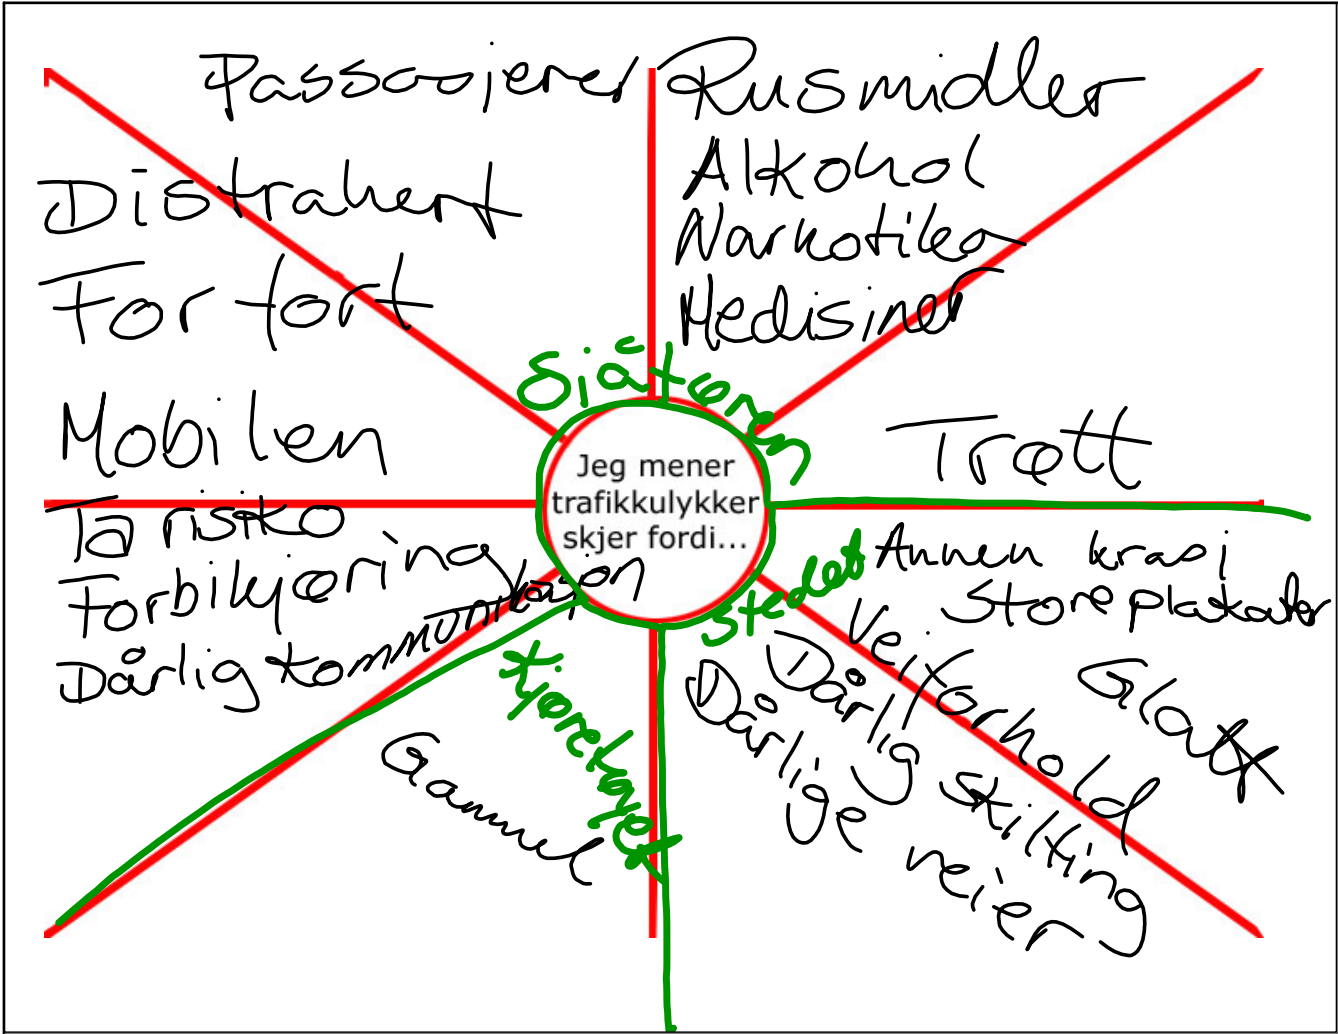 Passasjerer
Rusmidler
Alkohol
Narkotika
Medisiner
Distrahert
For fort
Mobilen
Sjåføren
Trøtt
Jeg mener
trafikkulykker
skjer fordi...
Ta risiko
Forbikjøring
Dårlig kommunikasjon
stedet
Annen krasj
Store plakater
Veiforhold
Glatt
Dårlig skilting
Dårlige veier
Kjøretøyet
Gammel